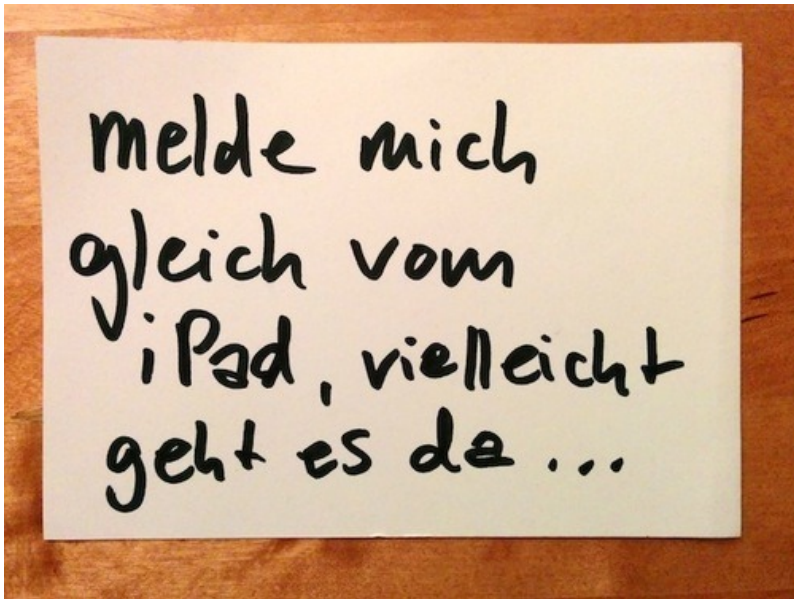 melde mich
gleich vom
iPad, vielleicht
geht es da ...